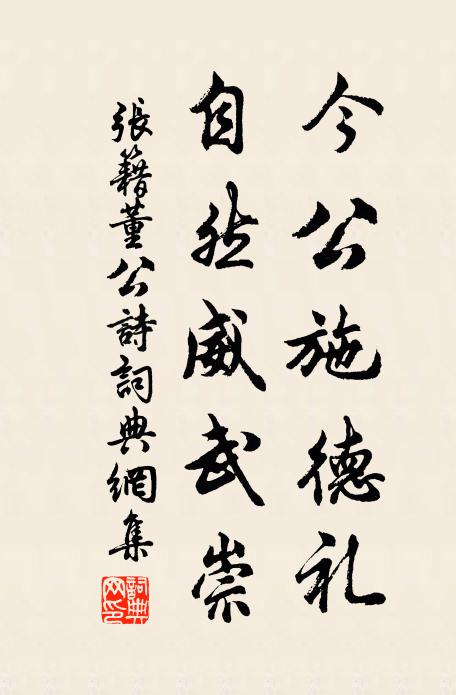 今公施德礼
自然威武崇
張籍董公詩詞典網集
詞典網印